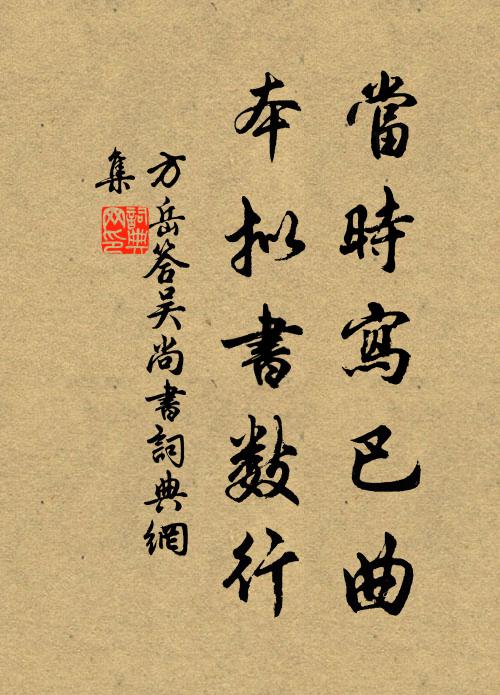 當時寫巴曲
本拟書数行
方岳答吴尚書詞典網
集
詞典网印